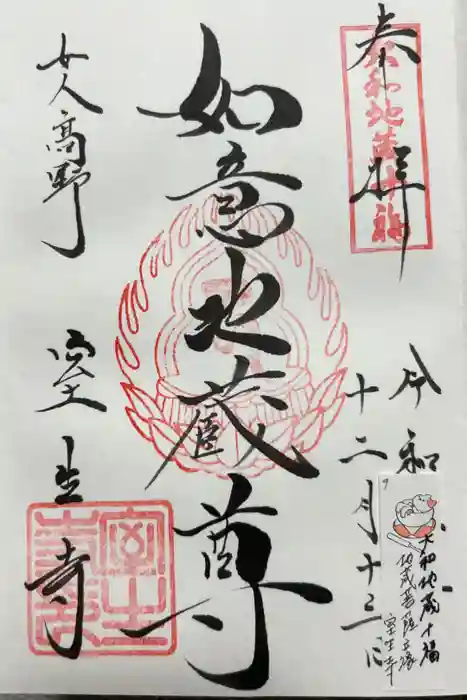 奉拝
大和地蔵十福
令和
十二月十三日
如意地蔵尊
女人高野
室生寺
大和地蔵十福
地蔵菩薩立像
室生寺